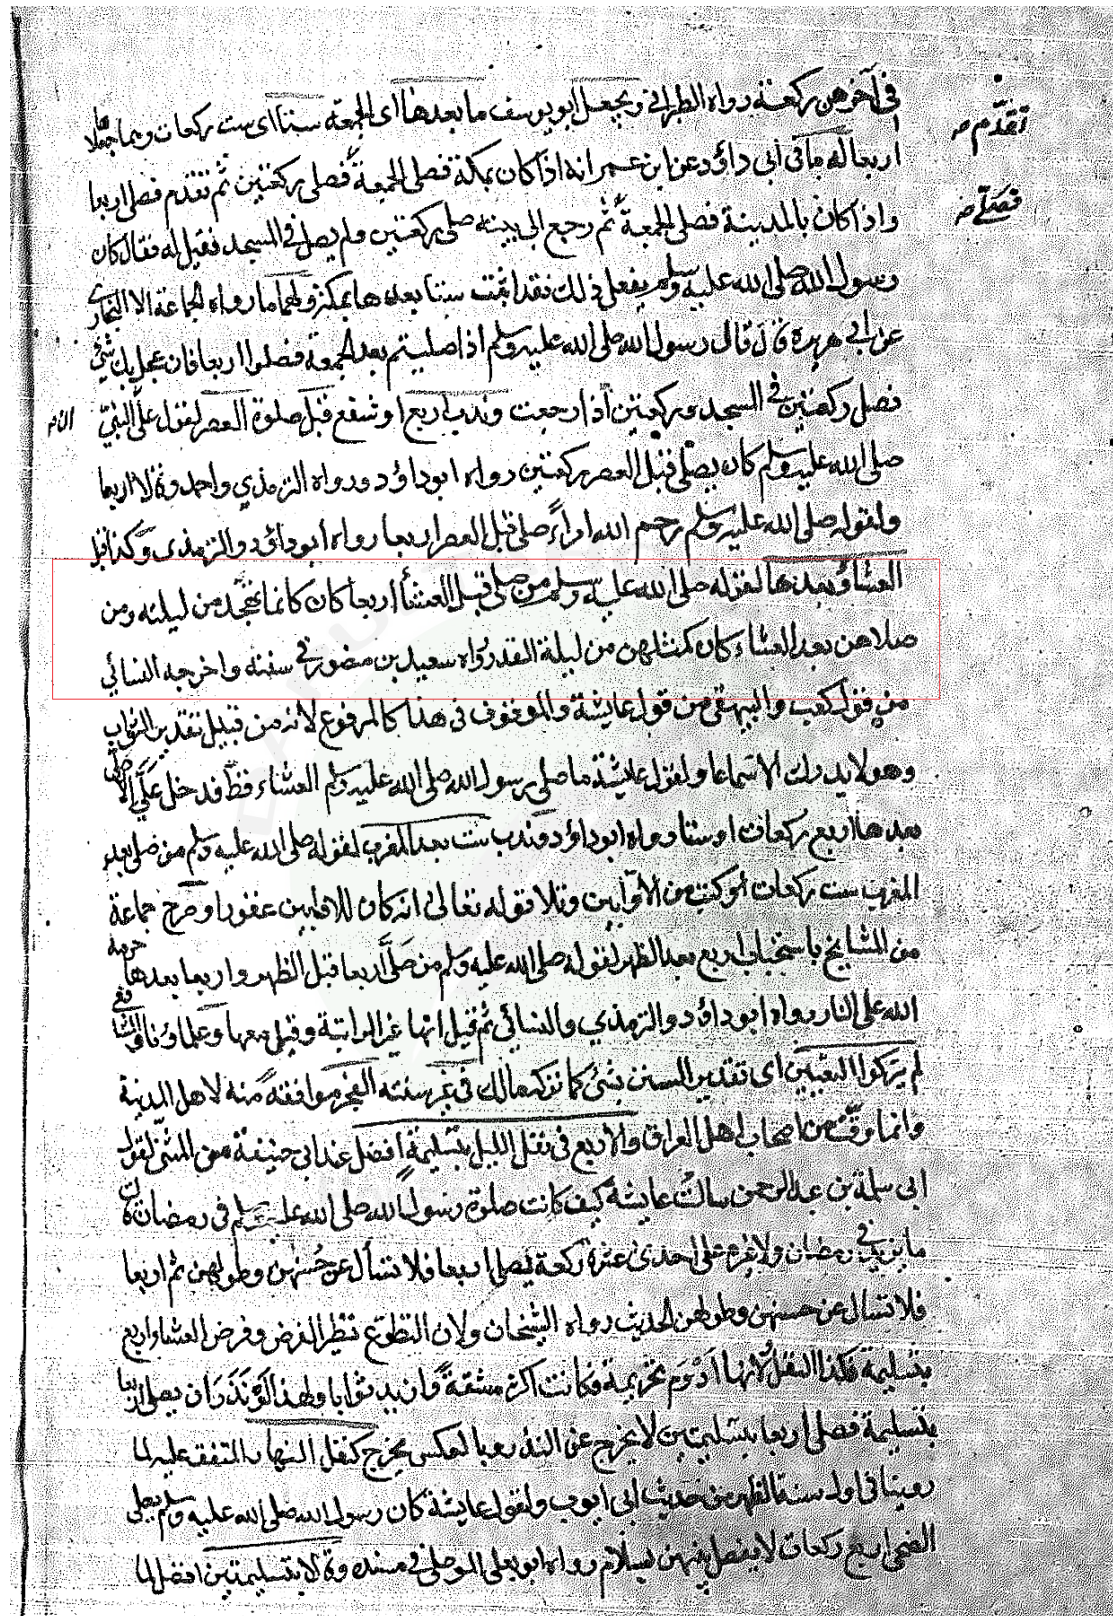 في آخرهن ركعة رواه الطبراني ويجعل ابو يوسف ما بعدها اى الجمعة ستا اى ست ركعات وهما جعلاها
تقدم صـ
اربعا له ما في أبي داؤد عن ابن عمر انه اذا كان بمكة فصلى الجمعة فصلى ركعتين ثم تقدم فصلى اربعا
فصلى صـ
واذا كان بالمدينة فصلى الجمعة ثم رجع الى بيته صلى ركعتين ولم يصل في المسجد فقيل له فقال كان
رسول الله صلى الله عليه وسلم يفعل ذلك فقد اثبت ستا بعدها بمكة ولهما ما رواه الجماعة الا البخارى
عن ابي هريرة قال قال رسول الله صلى الله عليه وسلم اذا صليتم بعد الجمعة فصلوا اربعا فان عجل بك شئ
فصل ركعتين في المسجد وركعتين اذا رجعت وندب اربع او شفع قبل صلوة العصر لقول علي النبي
صلى الله عليه وسلم كان يصلي قبل العصر ركعتين رواه ابوداؤد ورواه الترمذي واحمد وقالا اربعا
ولقوله صلى الله عليه وسلم رحم الله امراءً صلى قبل العصر اربعا رواه ابوداؤد والترمذى وكذا قبل
العشاء وبعدها لقوله صلى الله عليه وسلم من صلى قبل العشاء اربعا كان كانما تهجد من ليلته ومن
صلاهن بعد العشاء كان كمثلهن من ليلة القدر رواه سعيد بن منصور في سننه واخرجه النسائي
من قول كعب والبيهقي من قول عايشة والموقوف فى هذا كالمرفوع لأنه من قبيل تقدير الثواب
وهو لا يدرك الا سماعا ولقول عايشة ما صلى رسول الله صلى الله عليه وسلم العشاء قط فدخل عليَّ الا صلى
بعدها اربع ركعات او ستا رواه ابوداؤد وندب ست بعد المغرب لقوله صلى الله عليه وسلم من صلى بعد
المغرب ست ركعات كتب من الأوابين وتلا قوله تعالى انه كان للاوابين غفورا وصرح جماعة
من المشايخ باستحباب اربع بعد الظهر لقوله صلى الله عليه وسلم من صلى اربعا قبل الظهر واربعا بعدها حرمه
الله على النار رواه ابوداؤد والترمذي والنسائي ثم قيل انها غير الراتبة وقيل معها وعلماؤنا
لم يتركوا التعيين اى تقدير السنن بشئ كما تركه مالك في غير سنته الفجر موافقة منه لاهل المدينة
وانما وقت من اصحاب اهل العراق والاربع في نفل الليل بتسليمة افضل عند ابى حنيفة من المثنى لقول
ابى سلمة بن عبد الرحمن سالت عايشة كيف كانت صلوة رسول الله صلى الله عليه وسلم فى رمضان
ما يزيد في رمضان ولا غيره على احدى عشرة ركعة يصلى اربعا فلا تسأل عن حُسنهن وطولهن ثم اربعا
فلا تسال عن حسنهن وطولهن الحديث رواه الشيخان ولان التطوع نظير الفرض وفرض العشاء اربع
بتسليمة فكذا النفل لأنها ادوم تحريمة فكانت اكثر مشقة وازيد ثوابا ولهذا لو نذر ان يصلى اربعا
بتسليمة فصلى اربعا بتسليمتين لا يخرج عن النذر وبالعكس يخرج كنفل النهار المتفق عليه لما
روينا فى اول سنة الظهر من حديث ابى ايوب ولقول عايشة كان رسول الله صلى الله عليه وسلم يصلى
الضحى اربع ركعات لا يفصل بينهن بسلام رواه ابو يعلى الموصلى في مسنده وقالا بتسليمتين افضل لما